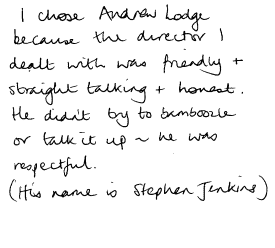 I chose Andrew Lodge
because the director I
dealt with was friendly +
straight talking + honest.
He didn't try to bamboozle
or talk it up ~ he was
respectful.
(His name is Stephen Jenkins)